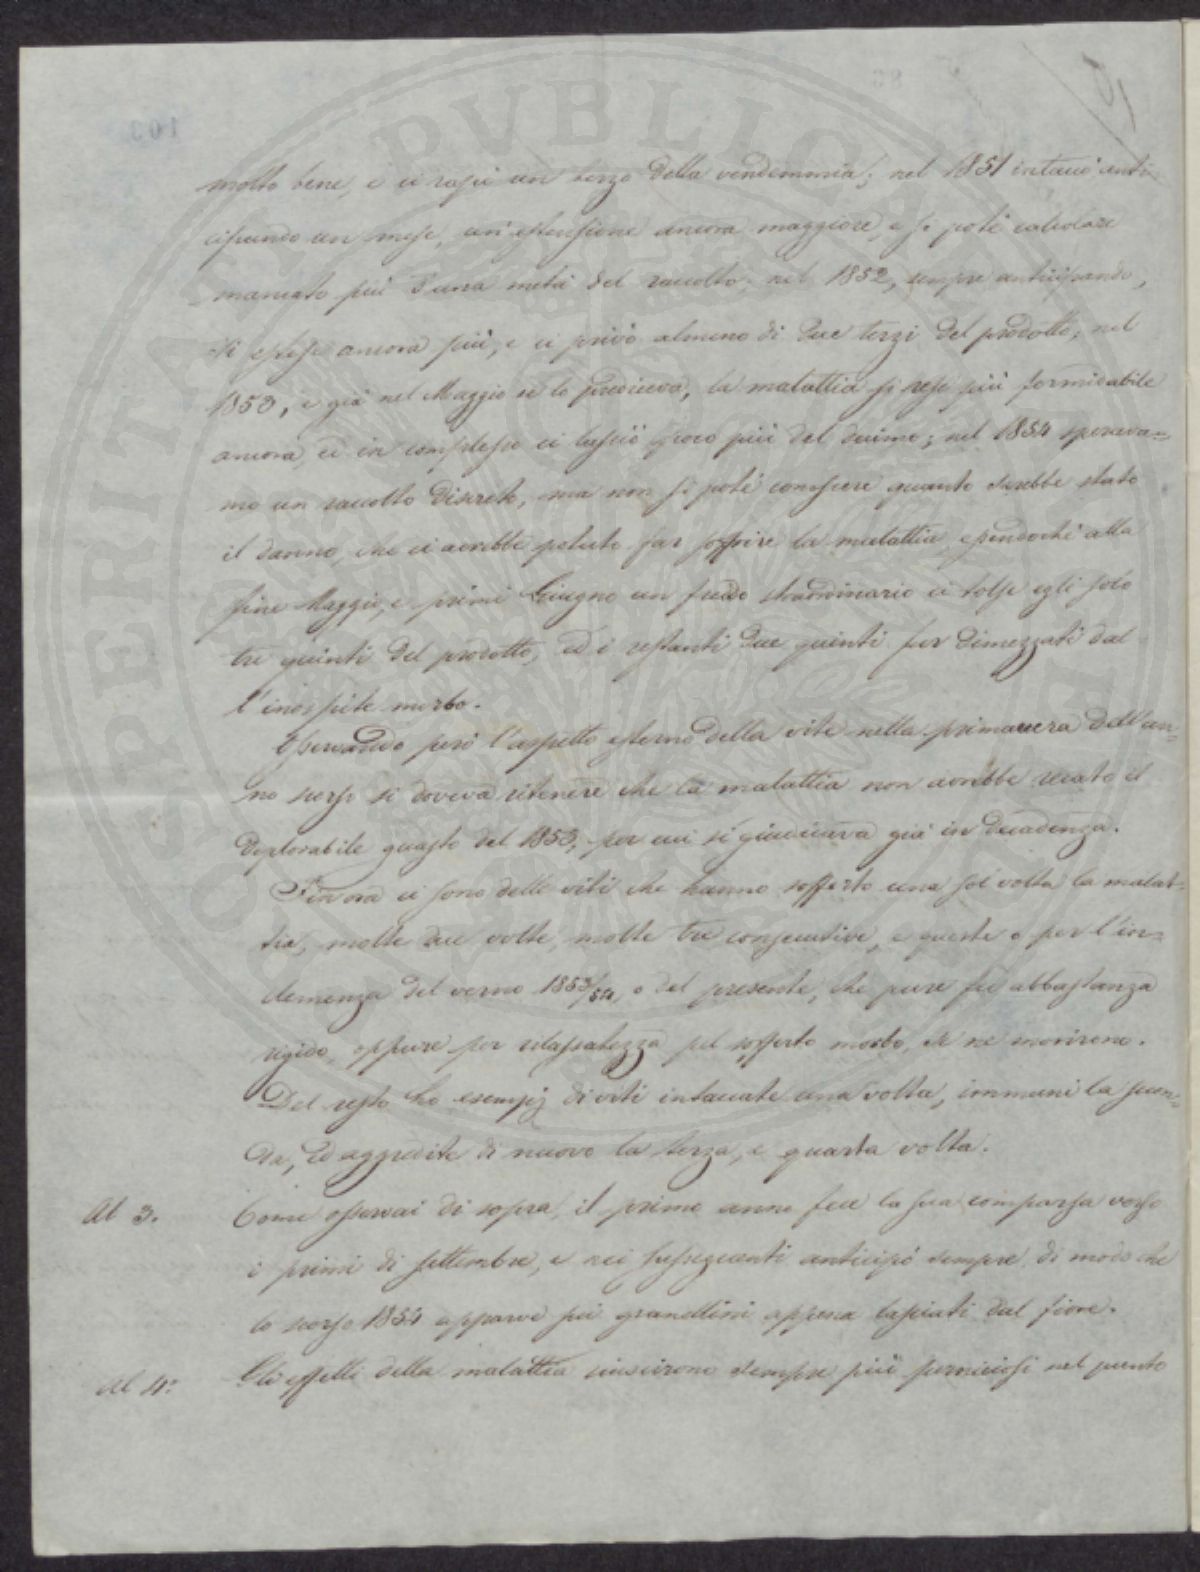 molto bene, e ci rapì un terzo della vendemmia; nel 1851 intaccò anti-
cipando un mese, un'estensione ancora maggiore, e si potè calcolare
mancato più d'una metà del raccolto; nel 1852, sempre anticipando,
si estese ancora più, e ci privò almeno di due terzi del prodotto; nel
1853, e già nel Maggio se lo prediceva, la malattia si rese più formidabile
ancora, ed in complesso ci lasciò poco più del decimo; nel 1854 sperava=
mo un raccolto discreto, ma non si potè conoscere quanto sarebbe stato
il danno, che ci avrebbe potuto far soffrire la malattia, essendochè alla
fine Maggio, e primi Giugno un freddo straordinario ci tolse egli solo
tre quinti del prodotto, ed i restanti due quinti fur dimezzati dal=
l'inospite morbo.
Osservando però l'aspetto esterno della vite nella primavera dell'an=
no scorso si doveva ritenere che la malattia non avrebbe recato il
deplorabile guasto del 1853, per cui si giudicava già in decadenza.
Fin ora ci sono delle viti che hanno sofferto una sol volta la malat=
tia, molte due volte, molte tre consecutive, e queste o per l'in=
clemenza del verno 1853/54, o del presente, che pure fu abbastanza
rigido, oppure per rilassatezza pel sofferto morbo, se ne morirono.
Del resto ho esempj di viti intaccate una volta, immuni la secon=
da, ed aggredite di nuovo la terza, e quarta volta.
Al 3. Come osservai di sopra, il primo anno fece la sua comparsa verso
i primi di settembre, e nei susseguenti anticipò sempre, di modo che
lo scorso 1854 apparve sui granellini appena lasciati dal fiore.
Al 4: Gli effetti della malattia riuscirono sempre più perniciosi nel punto